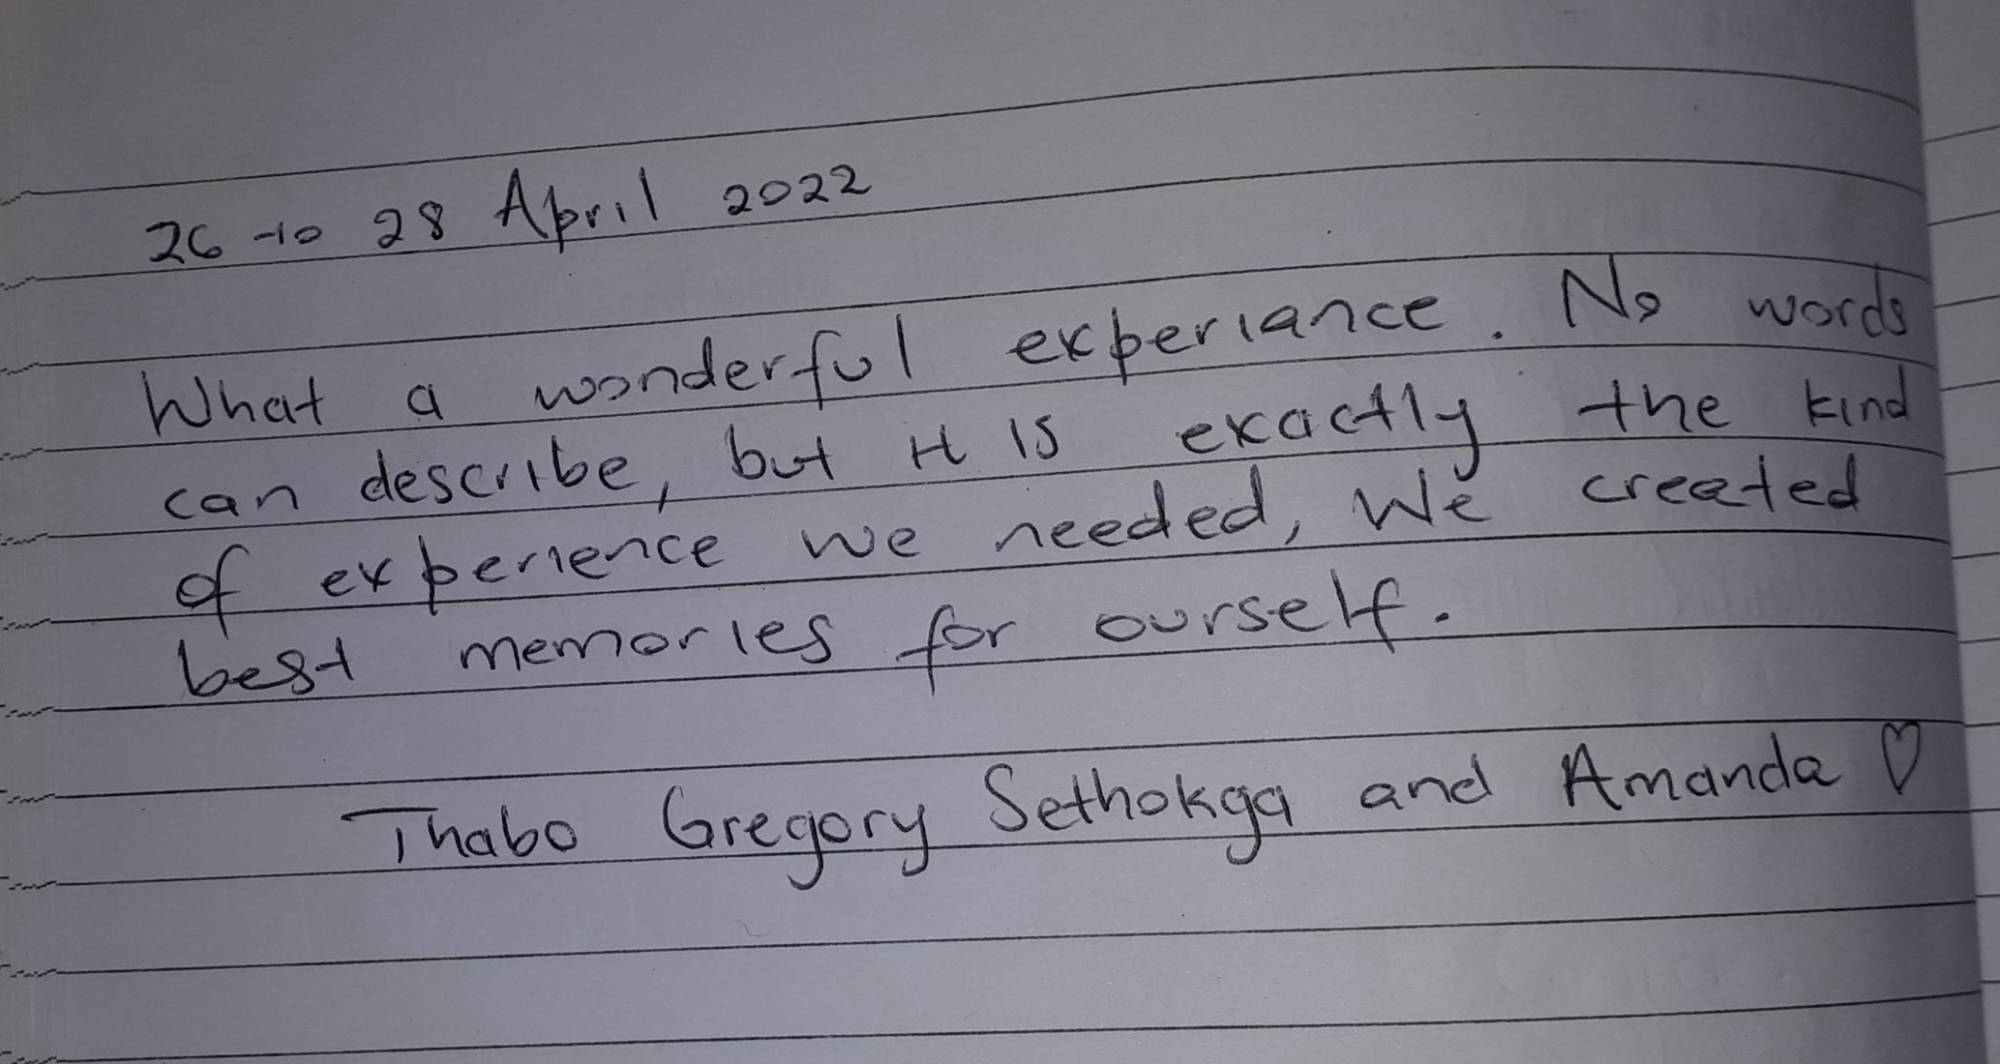 26 to 28 April 2022
What a wonderful experiance. No words
can describe, but it is exactly the kind
of experience we needed, We created
best memories for ourself.
Thabo Gregory Sethokga and Amanda ♡